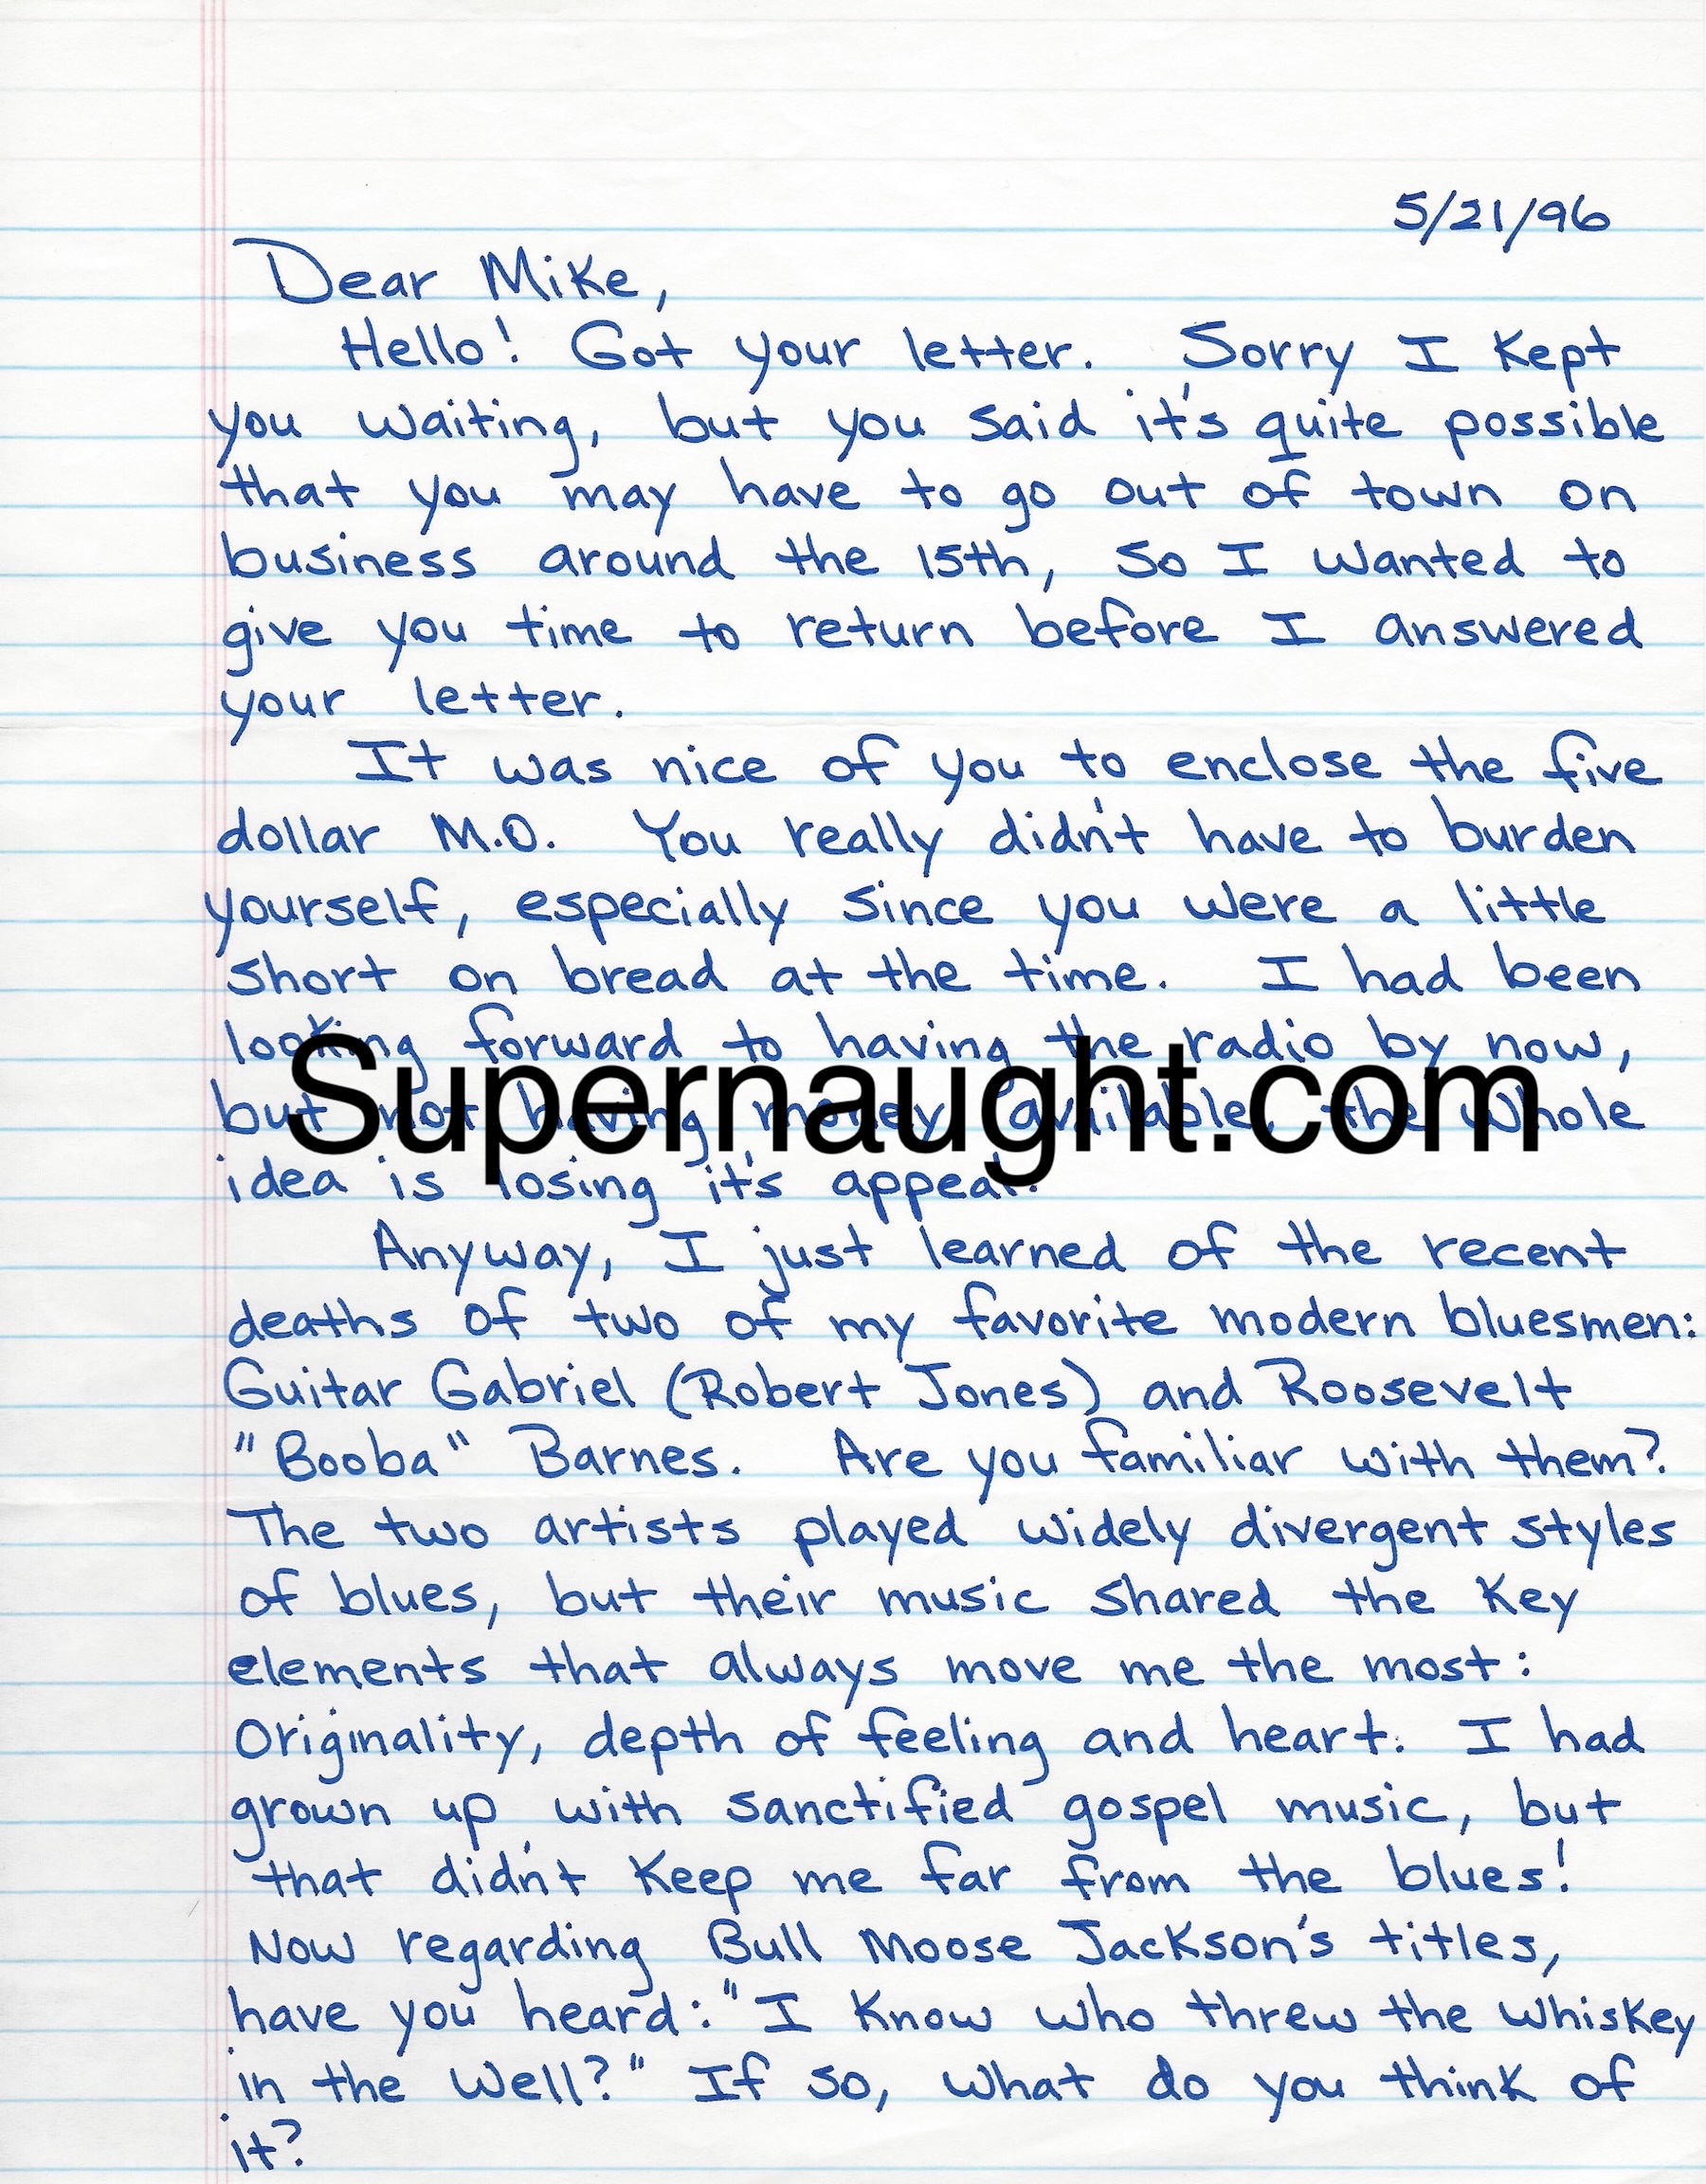 5/21/96
Dear Mike,
Hello! Got your letter. Sorry I kept
you waiting, but you said it's quite possible
that you may have to go out of town on
business around the 15th, so I wanted to
give you time to return before I answered
your letter.
It was nice of you to enclose the five
dollar M.O. You really didn't have to burden
yourself, especially since you were a little
short on bread at the time. I had been
looking forward to having the radio by now,
Supernaught.com
but not having money available, the whole
idea is losing it's appeal.
Anyway, I just learned of the recent
deaths of two of my favorite modern bluesmen:
Guitar Gabriel (Robert Jones) and Roosevelt
"Booba" Barnes. Are you familiar with them?
The two artists played widely divergent styles
of blues, but their music shared the key
elements that always move me the most:
Originality, depth of feeling and heart. I had
grown up with sanctified gospel music, but
that didn't keep me far from the blues!
Now regarding Bull Moose Jackson's titles,
have you heard: "I know who threw the whiskey
in the well?" If so, what do you think of
it?